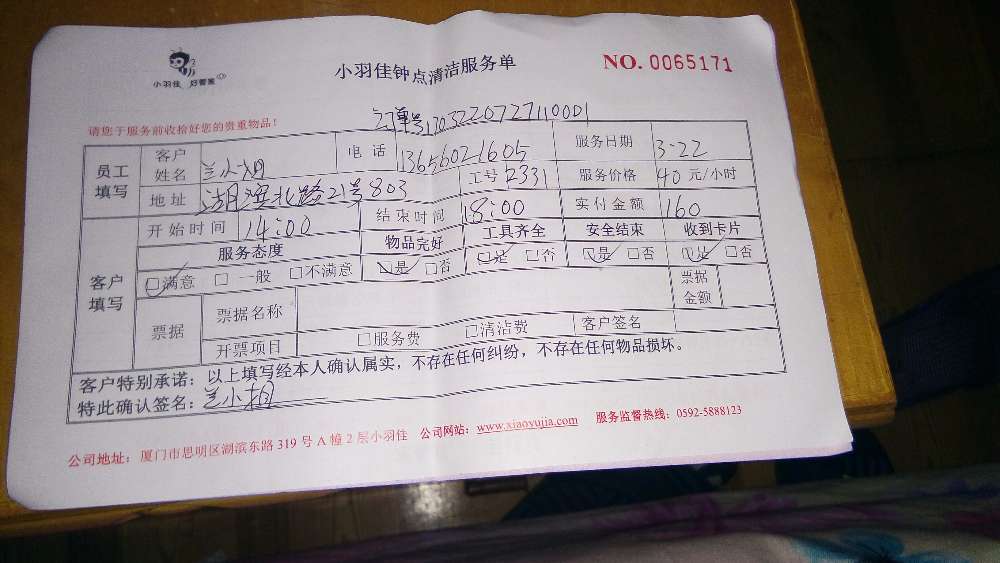 小羽佳 好管家
小羽佳钟点清洁服务单
NO. 0065171
请您于服务前收拾好您的贵重物品!
订单号1703220727110001
员工填写 客户姓名 兰小姐 电话 13656021605 服务日期 3·22
地址 湖滨北路21号803 工号 2331 服务价格 40元/小时
客户填写 开始时间 14:00 结束时间 18:00 实付金额 160
服务态度 物品完好 工具齐全 安全结束 收到卡片
☑满意 □一般 □不满意 ☑是 □否 ☑是 □否 ☑是 □否 ☑是 □否
票据 票据名称 票据金额
开票项目 □服务费 □清洁费 客户签名
客户特别承诺:以上填写经本人确认属实,不存在任何纠纷,不存在任何物品损坏。
特此确认签名:兰小姐
公司地址:厦门市思明区湖滨东路319号A幢2层小羽佳 公司网站:www.xiaoyujia.com 服务监督热线:0592-5888123